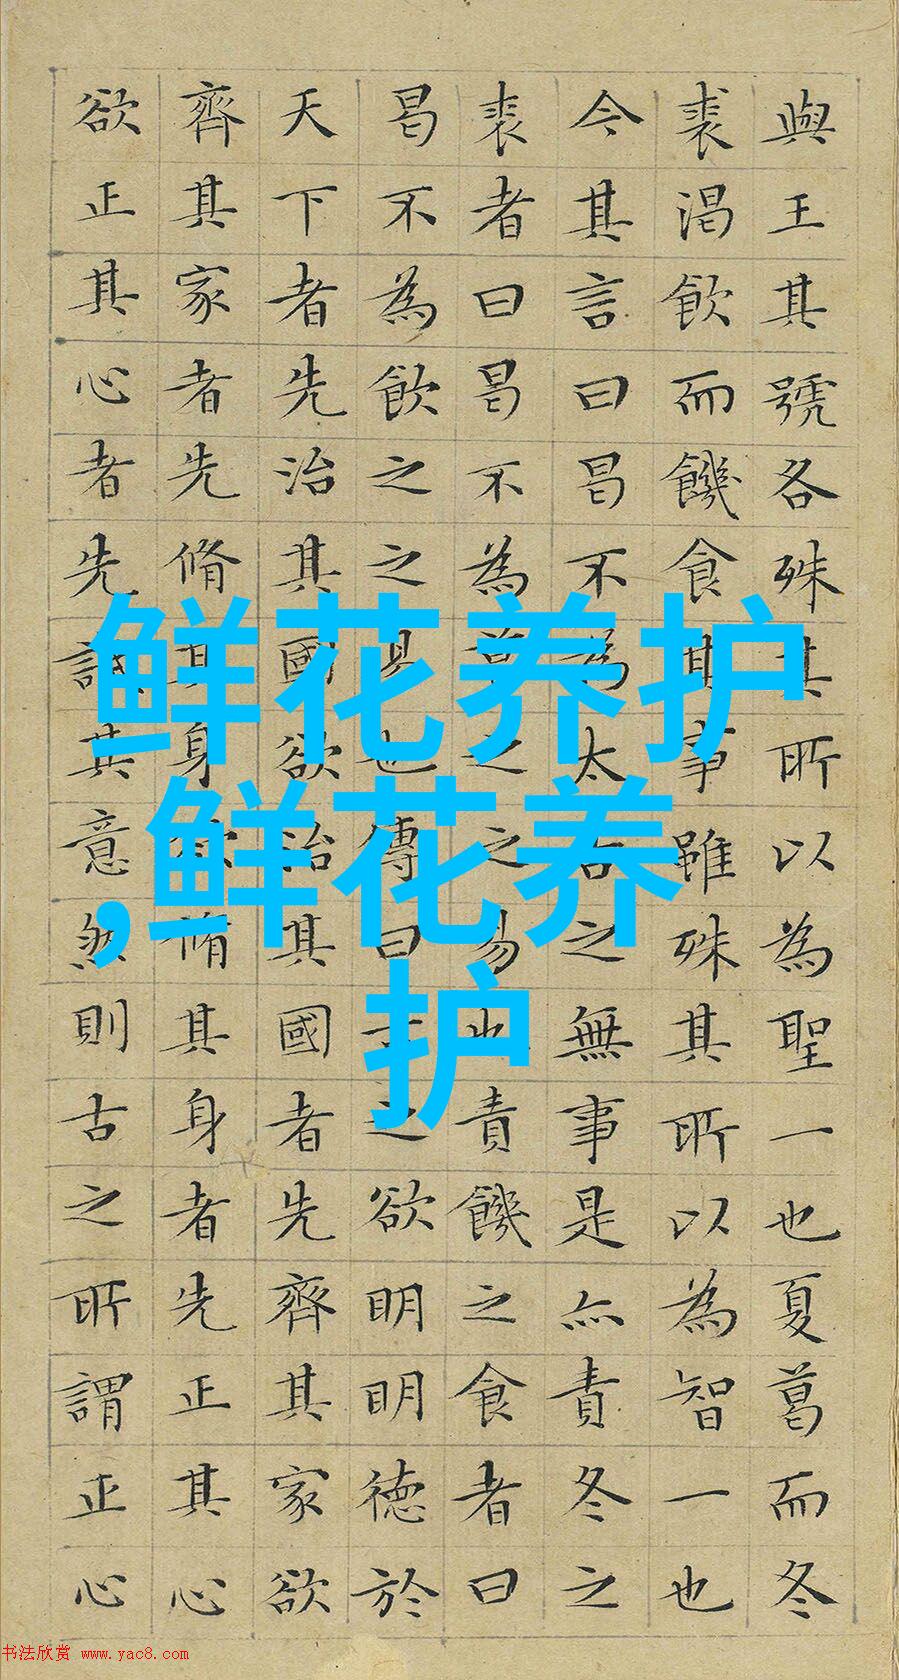 與王其號各殊其所以為聖一也夏葛而冬
裘渴飲而饑食其事雖殊其所以為智一也
今其言曰曷不為太古之無事是亦責冬之
裘者曰曷不為葛之之易也責饑之食者曰
曷不為飲之之易也傳曰古之欲明明德於
天下者先治其國欲治其國者先齊其家欲
齊其家者先脩其身欲脩其身者先正其心
欲正其心者先誠其意然則古之所謂正心
鲜花养护
,鲜花养
护
书法欣赏 www.yac8.com